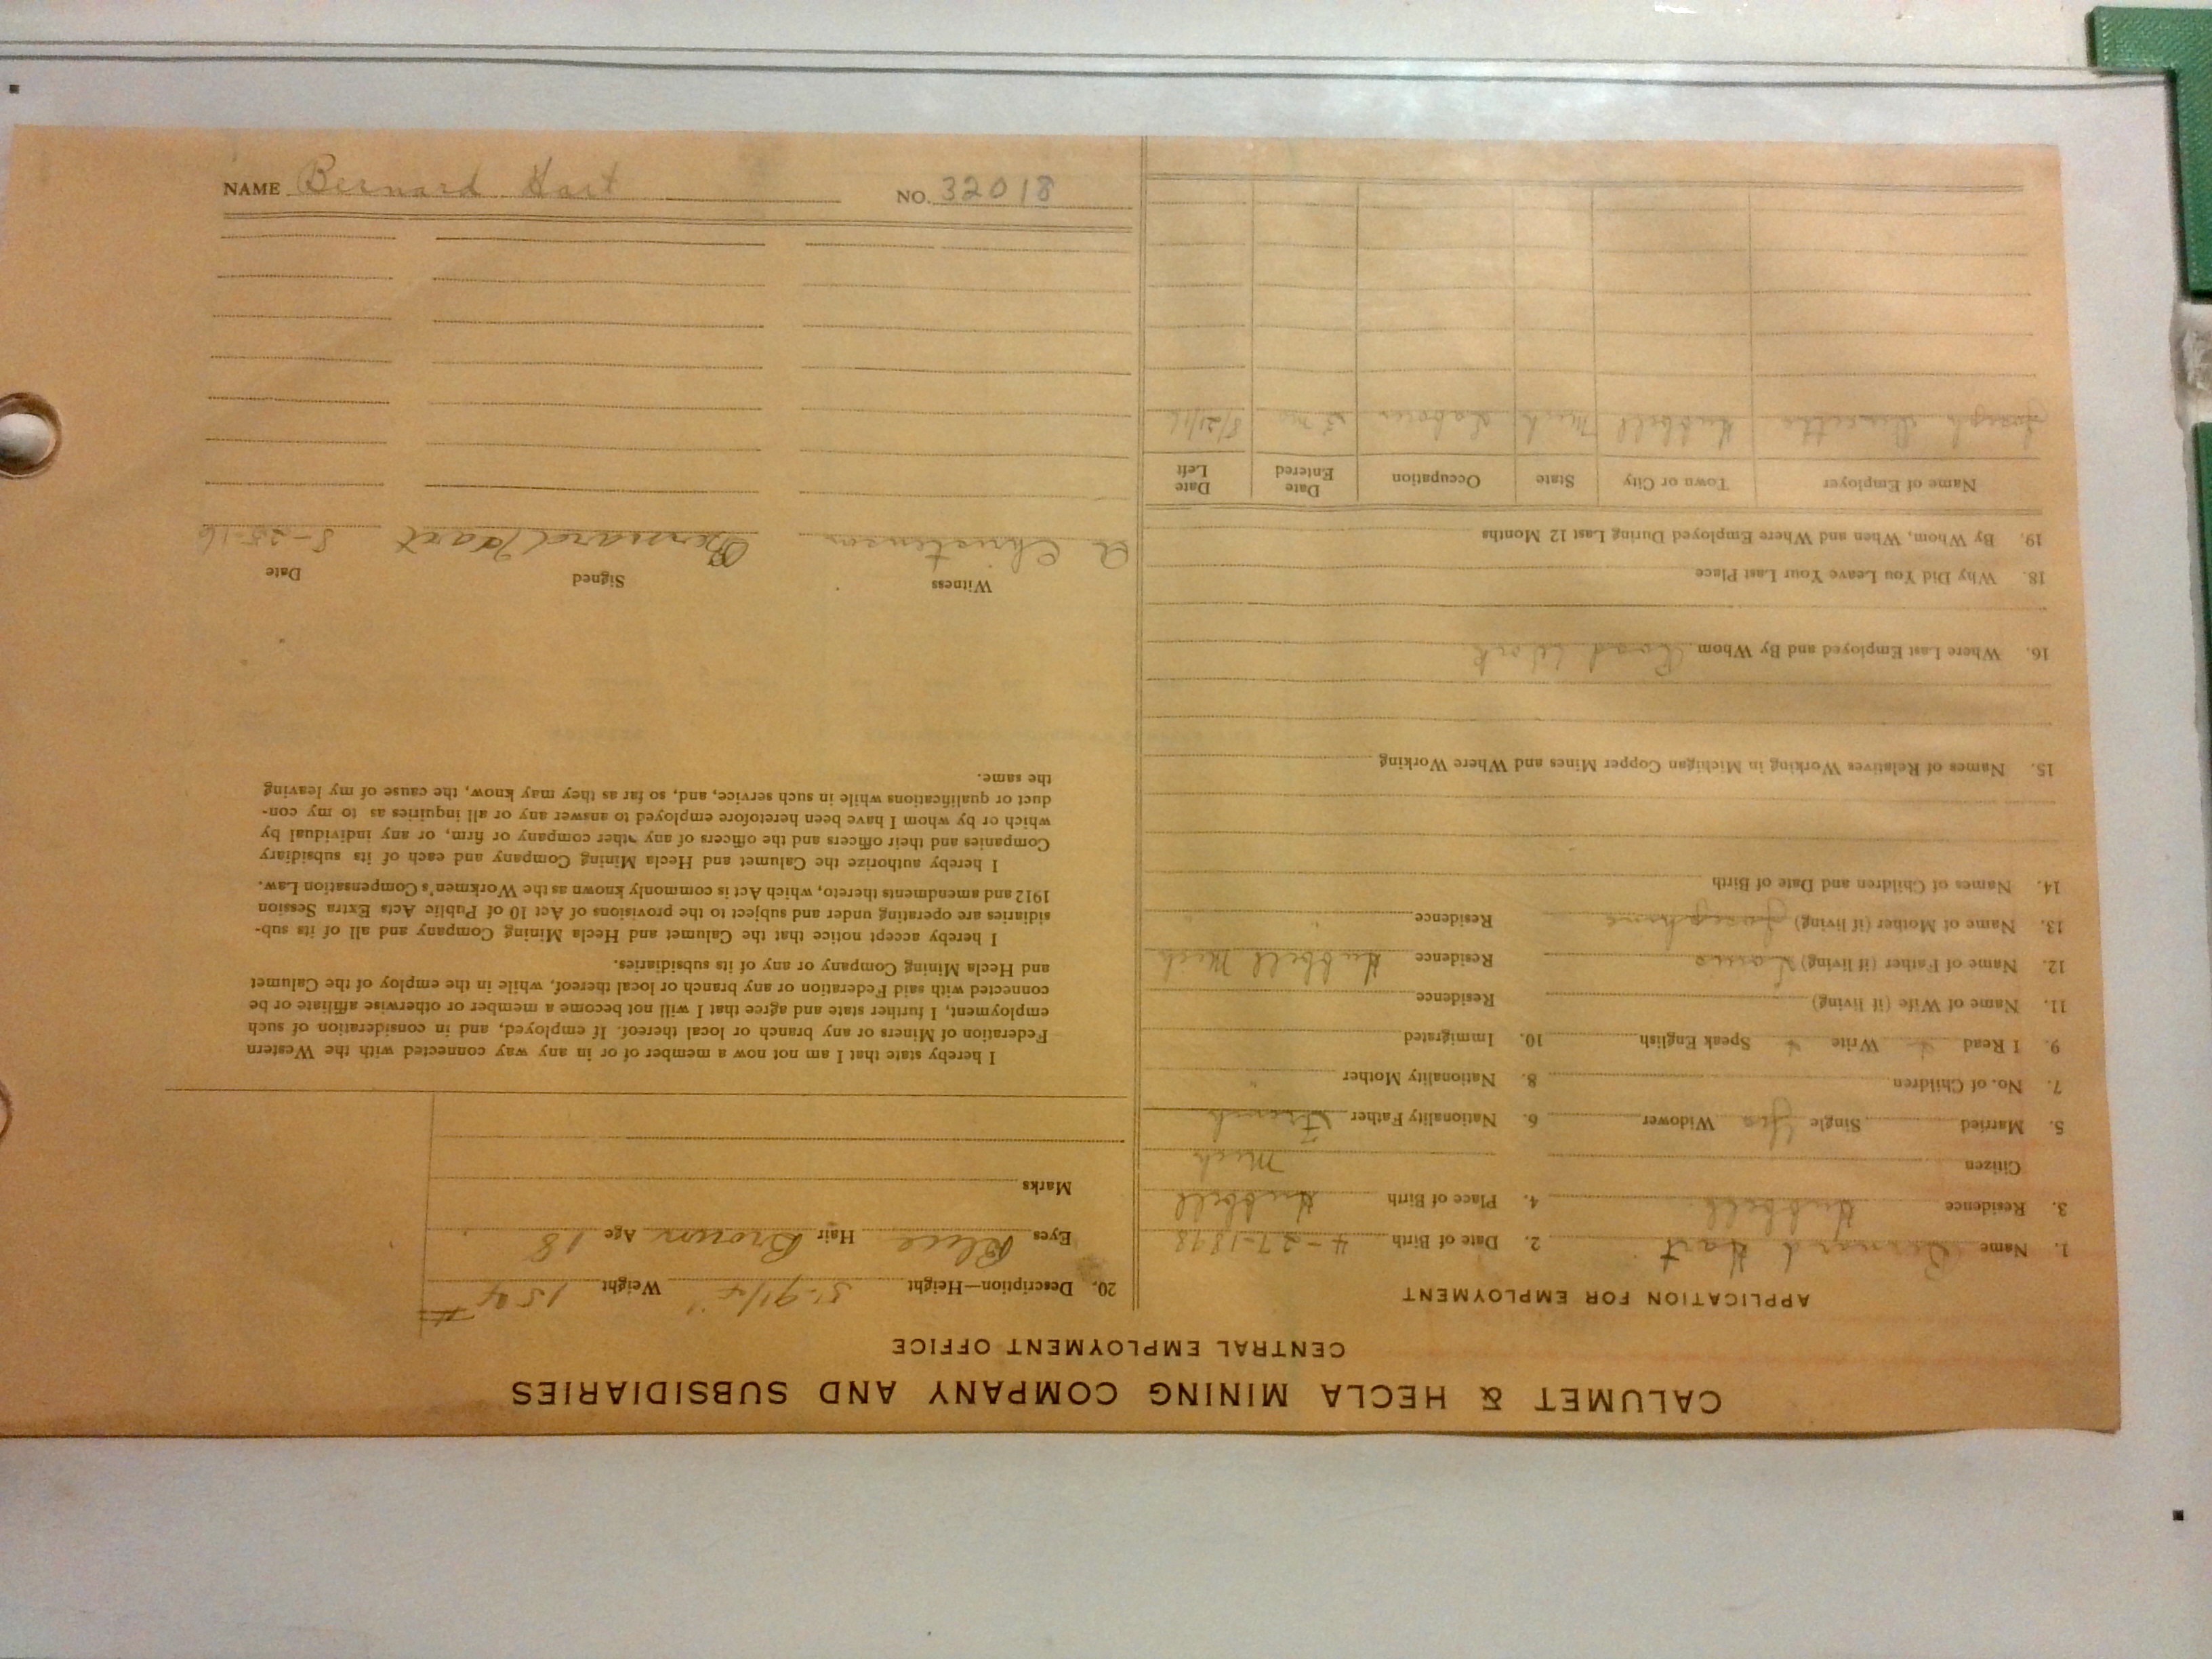 CALUMET & HECLA MINING COMPANY AND SUBSIDIARIES
CENTRAL EMPLOYMENT OFFICE
APPLICATION FOR EMPLOYMENT
1. Name Bernard Hart 2. Date of Birth 4-27-1898
3. Residence Hubbell 4. Place of Birth Hubbell
Citizen Mich
5. Married Single Yes Widower 6. Nationality Father French
7. No. of Children 8. Nationality Mother "
9. I Read Write Speak English 10. Immigrated
11. Name of Wife (if living) Residence
12. Name of Father (if living) Residence Hubbell Mich
13. Name of Mother (if living) Josephine Residence " "
14. Names of Children and Date of Birth
15. Names of Relatives Working in Michigan Copper Mines and Where Working
16. Where Last Employed and By Whom Road Work
18. Why Did You Leave Your Last Place
19. By Whom, When and Where Employed During Last 12 Months
Name of Employer Town or City State Occupation Date Entered Date Left
Joseph Hubbell Mich Labour 3 mo 8/21/16
20. Description—Height 5'-9 1/4" Weight 154 #
Eyes Blue Hair Brown Age 18
Marks
I hereby state that I am not now a member of or in any way connected with the Western
Federation of Miners or any branch or local thereof. If employed, and in consideration of such
employment, I further state and agree that I will not become a member or otherwise affiliate or be
connected with said Federation or any branch or local thereof, while in the employ of the Calumet
and Hecla Mining Company or any of its subsidiaries.
I hereby accept notice that the Calumet and Hecla Mining Company and all of its sub-
sidiaries are operating under and subject to the provisions of Act 10 of Public Acts Extra Session
1912 and amendments thereto, which Act is commonly known as the Workmen's Compensation Law.
I hereby authorize the Calumet and Hecla Mining Company and each of its subsidiary
Companies and their officers and the officers of any other company or firm, or any individual by
which or by whom I have been heretofore employed to answer any or all inquiries as to my con-
duct or qualifications while in such service, and, so far as they may know, the cause of my leaving
the same.
Witness Signed Date
A Christensen Bernard Hart 8-25-16
NAME Bernard Hart NO. 32018